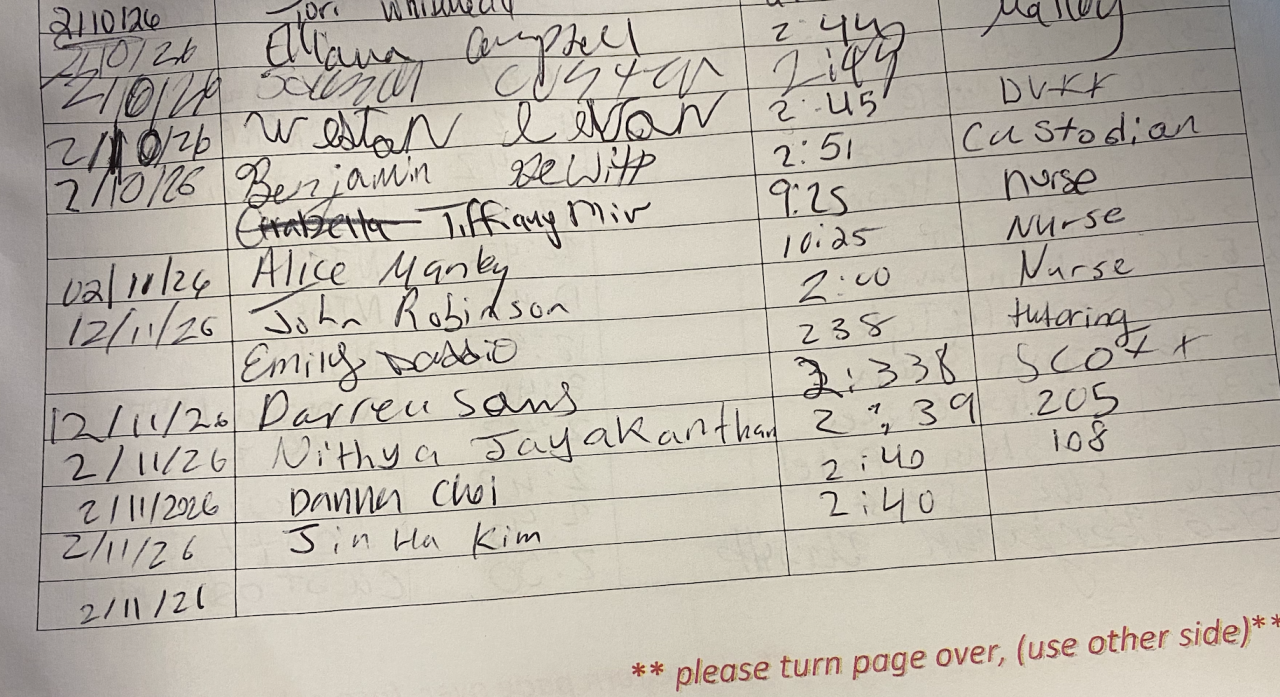 2/10/26 Tori
2/10/26 Eliana 2:44 Malloy
2/10/26 2:44
2/10/26 Westan levan 2:45 DVKT
2/10/26 Benjamin DeWitt 2:51 Custodian
Tiffany Mir 9:25 nurse
02/11/26 Alice Manby 10:25 Nurse
12/11/26 John Robinson 2:00 Nurse
Emily Daddio 238 tutoring
12/11/26 Darren Sans 2:338 Scott
2/11/26 Nithya Jayakanthan 2:39 205
2/11/2026 Danna Choi 2:40 108
2/11/26 Jin Ha Kim 2:40
2/11/26
** please turn page over, (use other side)**